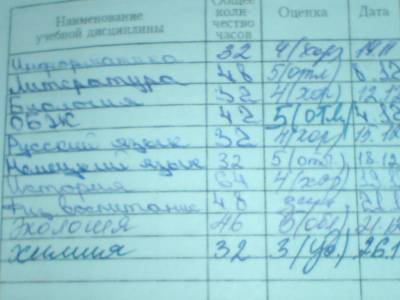 Наименование учебной дисциплины Общее коли-чество часов Оценка Дата
Информатика 32 4 (хор)
Литература 48 5 (отл)
Биология 32 4 (хор) 12.12
ОБЖ 42 5 (отл)
Русский язык 32 4 (хор)
Немецкий язык 32 5 (отл) 18.12
История 64 4 (хор)
Физ воспитание 48
Экология 46
Химия 32 3 (уд) 26.1